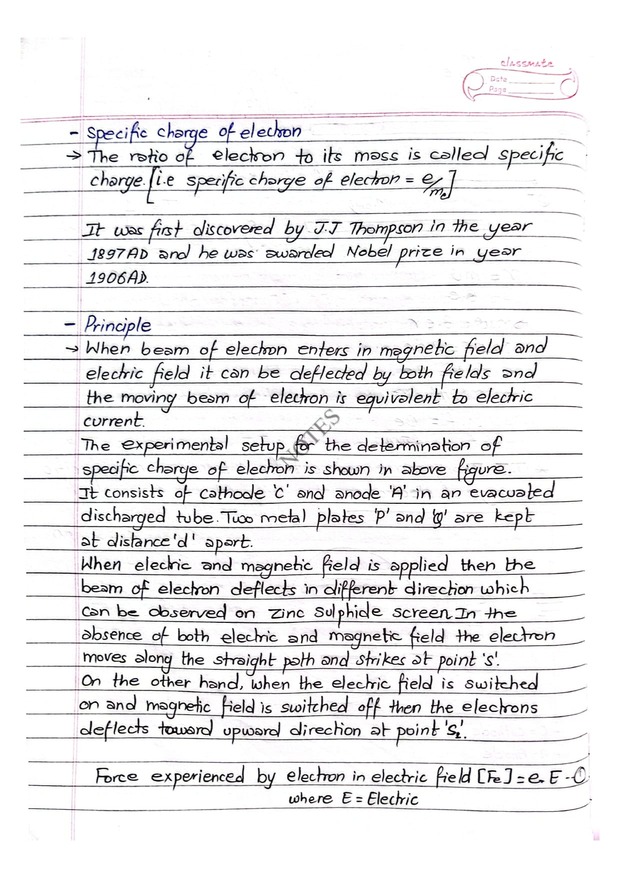 classmate
Date
Page
- Specific charge of electron
→ The ratio of electron to its mass is called specific
charge. [i.e specific charge of electron = e/me]
It was first discovered by J.J Thompson in the year
1897AD and he was awarded Nobel prize in year
1906AD.
- Principle
→ When beam of electron enters in magnetic field and
electric field it can be deflected by both fields and
the moving beam of electron is equivalent to electric
current.
The experimental setup for the determination of
specific charge of electron is shown in above figure.
It consists of cathode 'C' and anode 'A' in an evacuated
discharged tube. Two metal plates 'P' and 'Q' are kept
at distance 'd' apart.
When electric and magnetic field is applied then the
beam of electron deflects in different direction which
can be observed on zinc sulphide screen. In the
absence of both electric and magnetic field the electron
moves along the straight path and strikes at point 's'.
On the other hand, when the electric field is switched
on and magnetic field is switched off then the electrons
deflects toward upward direction at point 'S₂'.
Force experienced by electron in electric field [Fe] = e. E - ①
where E = Electric
NOTES